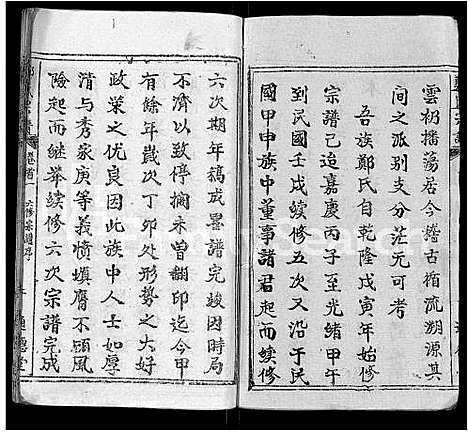 雲礽播蕩居今稽古循流溯源其
間之派别支分茫无可考
吾族鄭氏自乾隆戊寅年始修
宗譜已迨嘉慶丙子至光緒甲午
到民國壬戌續修五次又沿于民
國甲申族中董事諸君起而續修
六次期年稿成畧譜完竣因時局
不濟以致停擱未曽翻印迄今甲
有餘年歲次丁卯处形势之大好
政策之优良因此族中人士如厚
清与秀家庚等義憤填膺不頋風
險起而継举续修六次宗譜完成
卷首一
六修宗譜序